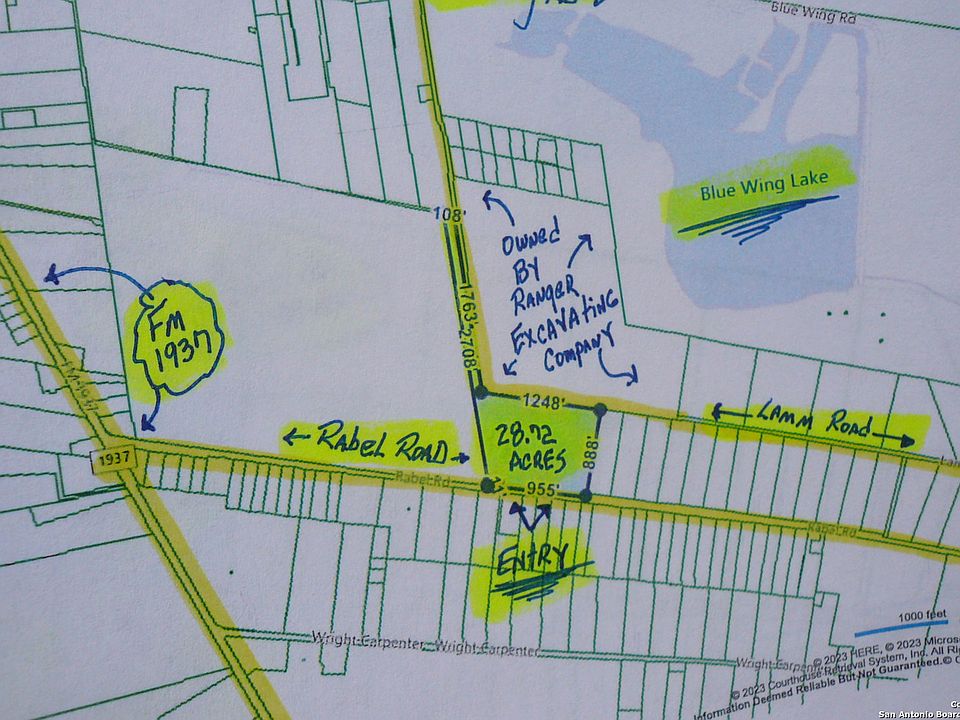 Blue Wing Rd
Blue Wing Lake
108'
OWNED
BY
RANGER
EXCAVATING
COMPANY
1763'
2708'
FM
1937
FM 1937
1937
1248'
28.72
ACRES
888'
955'
← RABEL ROAD →
Rabel Rd
← LAMM ROAD →
Rabel Rd
ENTRY
1000 feet
Wright-Carpenter
Wright-Carpenter
Wright-Carpen
© 2023 HERE, © 2023 Microso
© 2023 Courthouse Retrieval System, Inc. All Ri
Information Deemed Reliable But Not Guaranteed.©
San Antonio Board